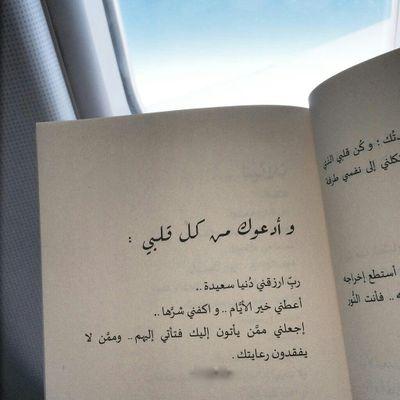 و أدعوك من كل قلبي :
ربِّ ارزقني دُنيا سعيدة ..
أعطني خير الأيَّام .. و اكفني شرَّها ..
إجعلني ممَّن يأتون إليك فتأتي إليهم .. وممَّن لا
يفقدون رعايتك .
ـدتُك ؛ و كُن قلبي النقي
تكلني إلى نفسي طرفة
أستطع إخراجه
ـه .. فأنت النُّور